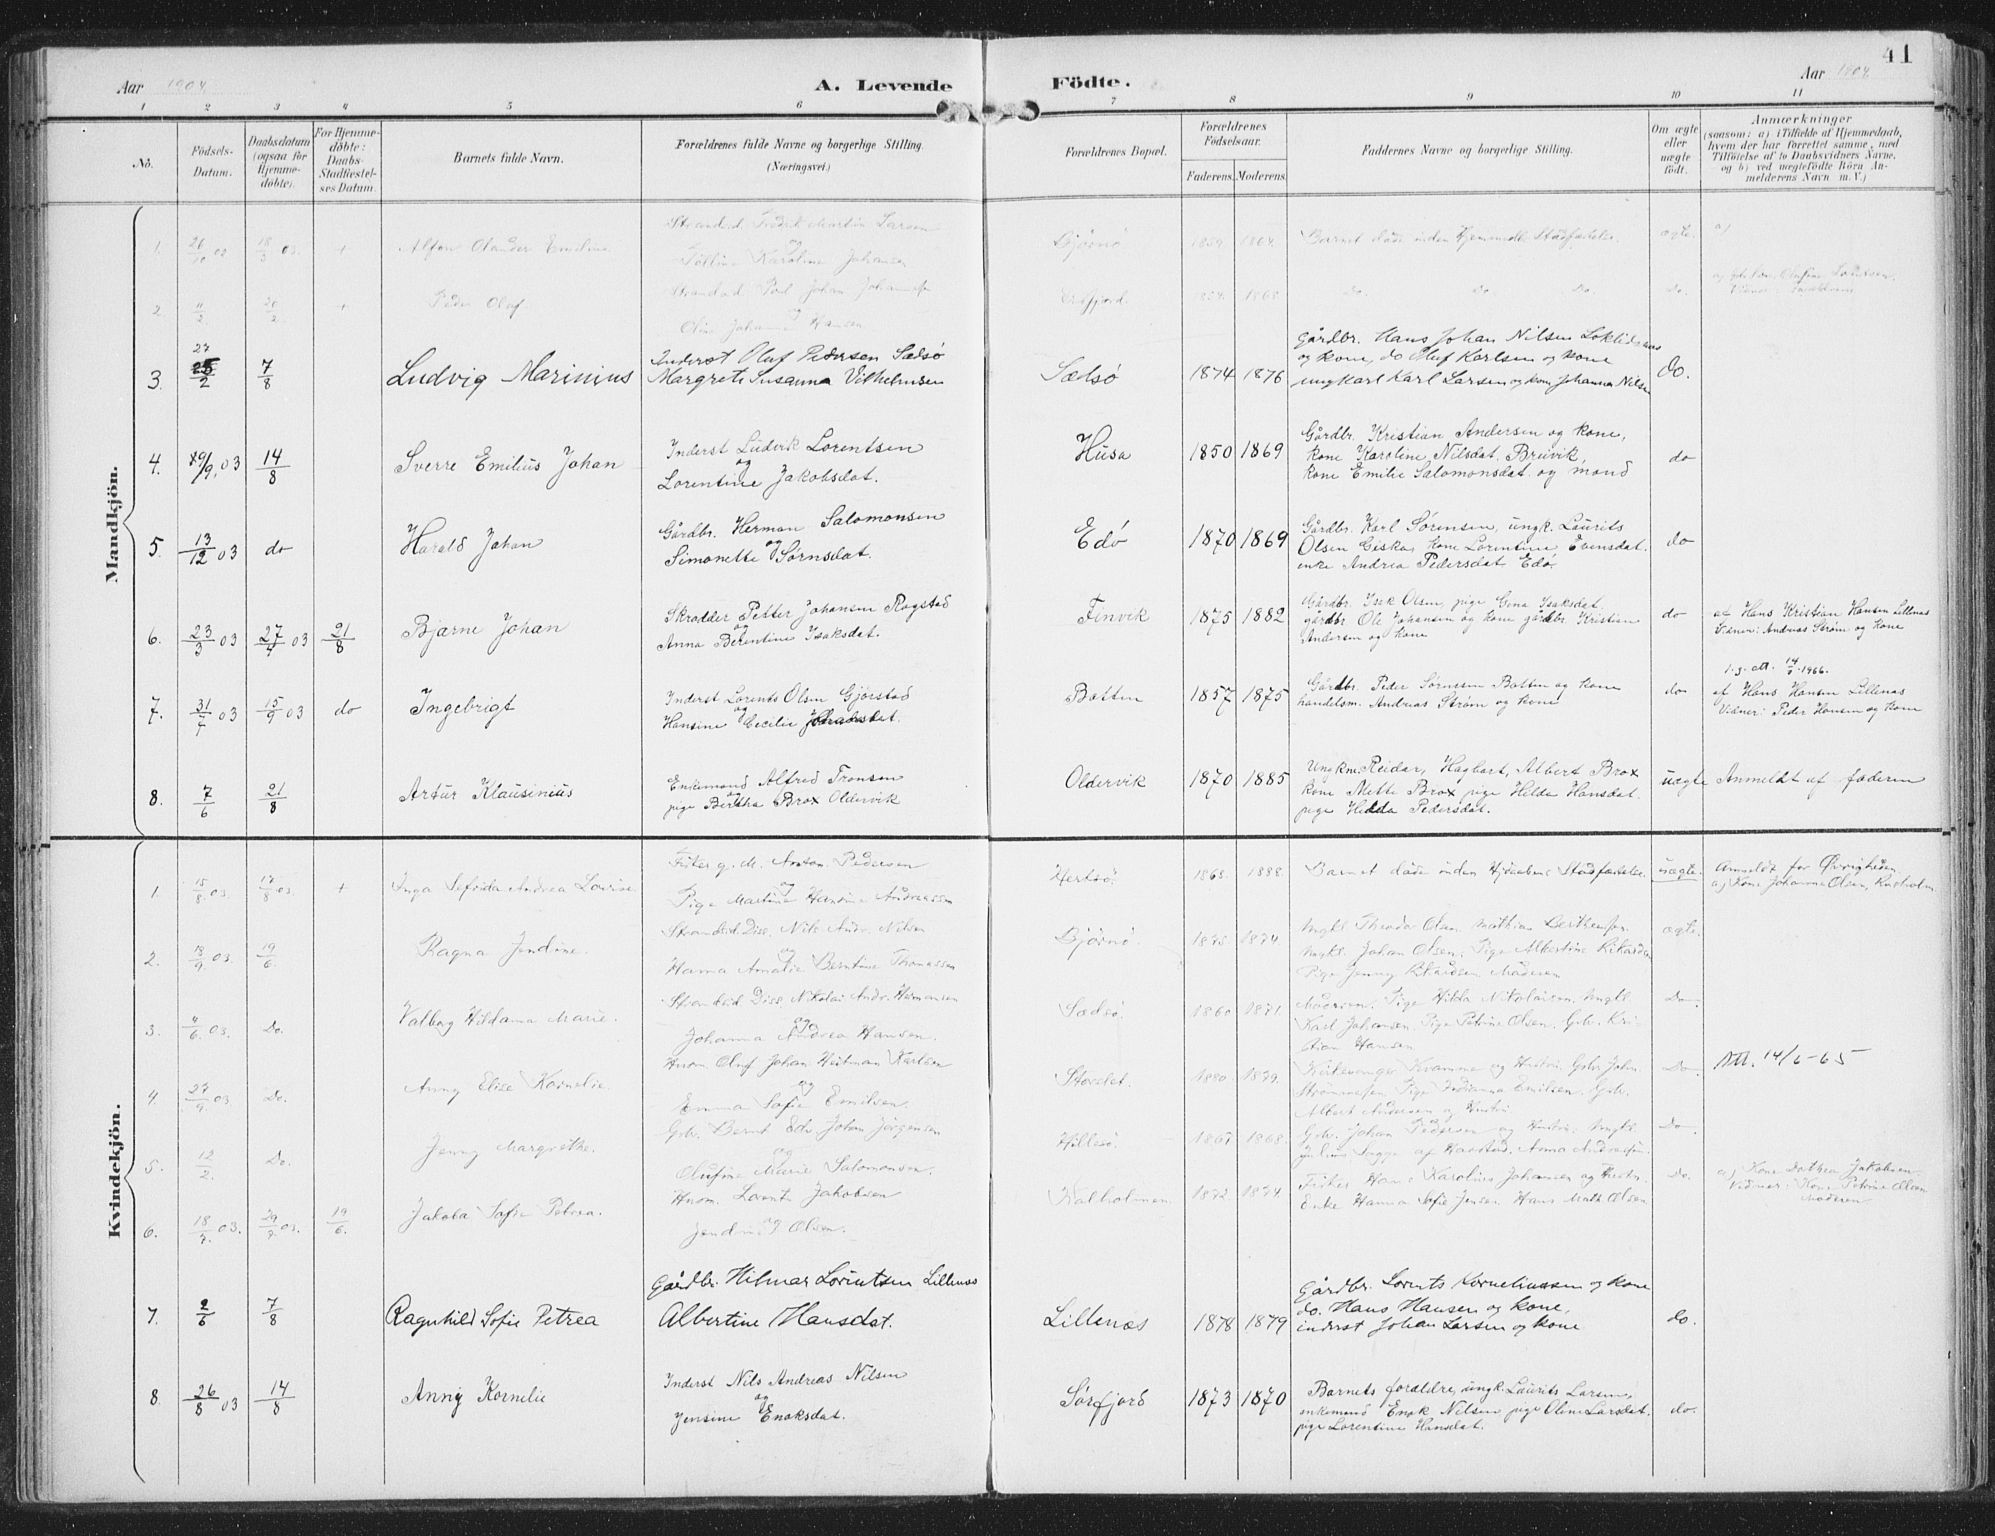 41
Aar 1904.
A. Levende Födte.
Aar 1904
1 2 3 4 5 6 7 8 9 10 11
No.
Födsels-Datum.
Daabsdatum (ogsaa for Hjemme-döbte).
For Hjemme-döbte: Daabs-Stadfæstel-ses Datum.
Barnets fulde Navn.
Forældrenes fulde Navne og borgerlige Stilling.
(Næringsvei.)
Forældrenes Bopæl.
Forældrenes Födselsaar.
Faderens. Moderens.
Faddernes Navne og borgerlige Stilling.
Om ægte eller uægte födt.
Anmærkninger
(saasom: a) i Tilfælde af Hjemmedaab, hvem der har forrettet samme, med Tilföielse af to Daabsvidners Navne, og b) ved uægtefödte Börn An-melderens Navn m. V.)
Mandkjön.
1. 26/10 02 18/3 03. + Alfon Olander Emelius
Strandsd Fredrik Martin Larsen
og
Karoline Johansen
Bjørnø 1859 1864. Barnet døde inden Hjemmedb. Stadfæstelse. ægte. a)
2. 11/2 20/2 + Peder Olaf
Strandsd Poul Johan Johannesen
og
Oline Johanna Hansen
1868 Do Do Do. Do.
3. 27 25/2 7/8 Ludvig Marinius
Inderst Oluf Pedersen Sædsø
Margrete Susanna Vilhelmsen
Sædsø 1874 1876
Gårdbr. Hans Johan Nilsen
og kone, do Oluf Karlsen og kone
ungkarl Karl Larsen og kone Johanna Nilsen
do.
4. 29/9. 03 14/8 Sverre Emilius Johan
Inderst Ludvik Lorentsen
og
Lorentine Jakobsdat.
Husa 1850 1869
Gårdbr. Kristian Andersen og kone,
kone Karoline Nilsdat. Breivik,
kone Emilie Salomonsdat og mand
do
5. 13/12 03 do Harald Johan
Gårdbr. Herman Salomonsen
og
Simonette Sørnsdat.
Edø 1870 1869
Gårdbr. Karl Sørensen, ungk. Laurits
Olsen Giska, kone Lorentine Evensdat.
enke Andrea Pedersdat Edø
do
6. 23/3 03 27/4 03 21/8 Bjarne Johan
Skrædder Petter Johansen Rogstad
og
Anna Berentine Isaksdat.
Finvik 1875 1882
Gårdbr. Isak Olsen, pige Gina Isaksdat.
gårdbr Ole Johansen og kone gårdbr Kristian
Andersen og kone
do
af Hans Kristian Hansen Lillenas
Vidner: Andreas Strøm og kone
7. 31/7 03 15/9 03 do Ingebrigt
Inderst Lorents Olsen Gjørstad
og
Hansine Cecilie
Botten 1857 1875
Gårdbr. Peder Sørnsen Botten og kone
handelsm. Andreas Strøm og kone
do
1.3. att. 14/3-1966.
af Hans Hansen Lillenas
Vidner: Peder Hansen og kone
8. 7/6 21/8 Artur Klausinius
Enkemand Alfred Tronsen
og
pige Bertha Brox Oldervik
Oldervik 1870 1885
Ungkm. Reidar, Hagbart, Albert Brox
kone Mette Brox pige Hilda Hansdat
pige Hedda Pedersdat.
uægte Anmeldt af faderen
Kvindekjön.
1. 15/8 03. 17/8 03 + Inga Sefrida Andrea Lovise
Fisker g. M. Anton Pedersen
og
Pige Martine Hansine Andreassen
Hertsø. 1868. 1888. Barnet døde inden Hjdaabens Stadfæstelse. uægte.
Anmeldt for Øvrigheden.
a) Kone Johanna Olsen,
2. 13/9 03. 19/6. Ragna Jendine.
Strandsid Diss. Nils Andr. Nilsen
og
Hanna Amalie Berntine Thomassen
Bjørnø 1875. 1874.
Ungkl. Theodor Olsen Mathias Berthensen
Ungkl. Johan Olsen. Pige Albertine Rikardsen
Pige Jenny Rikardsen Moderen
ægte.
3. 4/6. 03. Do. Valborg Hildama Marie.
Strandsid Diss Nikolai Andr. Hermansen
og
Johanna Andrea Hansen.
Sædsø. 1860 1871.
Moderen. Pige Hilda Nikolaisen. Ungkl.
Karl Johansen. Pige Petrine Olsen. Gbr. Kri-
stian Hansen
Do.
4. 27/9. 03. Do. Anny Elise Kornelie.
Husm. Oluf Johan Heitman Karlsen
og
Emma Sofie Emilsen.
Stordal. 1880. 1879.
Kirkesanger Kvamme og Hustru. Gbr John
Strømmesen Pige Indianna Emilsen. Gbr.
Albert Andersen og Hustru.
Do.
Att. 14/6-65
5. 12/2. Do. Jenny Margrethe.
Gbr. Bernt Edv. Johan Jørgensen
og
Olufine Marie Salomonsen.
Hillesø. 1867. 1868.
Gbr. Johan Pedersen og Hustru. Ungkl.
Julius af Harstad. Anna Andreassen
Do
6. 18/7. 03. 29/7. 03. 19/6. Jakoba Sofie Petrea.
Husm. Lorents Jakobsen
og
Jendine Olsen.
Kalholmen. 1872. 1874.
Fisker Hans Karolius Johansen og Hustru
Enke Hanna Sofie Jensen Hans Math Olsen
Do.
a) Kone Dorthea Jakobsen.
Vidner: Kone Petrine Olsen
Moderen
7. 2/6 7/8 Ragnhild Sofie Petrea
Gårdbr. Hilmar Lorintsen Lillenas
Albertine Hansdat.
Lillenæs 1878 1879
Gårdbr. Lorents Korneliussen og kone
do. Hans Hansen og kone,
inderst Johan Larsen og kone
do.
8. 26/8 03 14/8 Anny Kornelie
Inderst Nils Andreas Nilsen
og
Jensine Enoksdat.
Sørfjord 1873 1870
Barnets forældre, ungk. Laurits Larsen,
enkemand Enok Nilsen pige Oline Larsdat.
pige Lorentine Hansdat.
do.